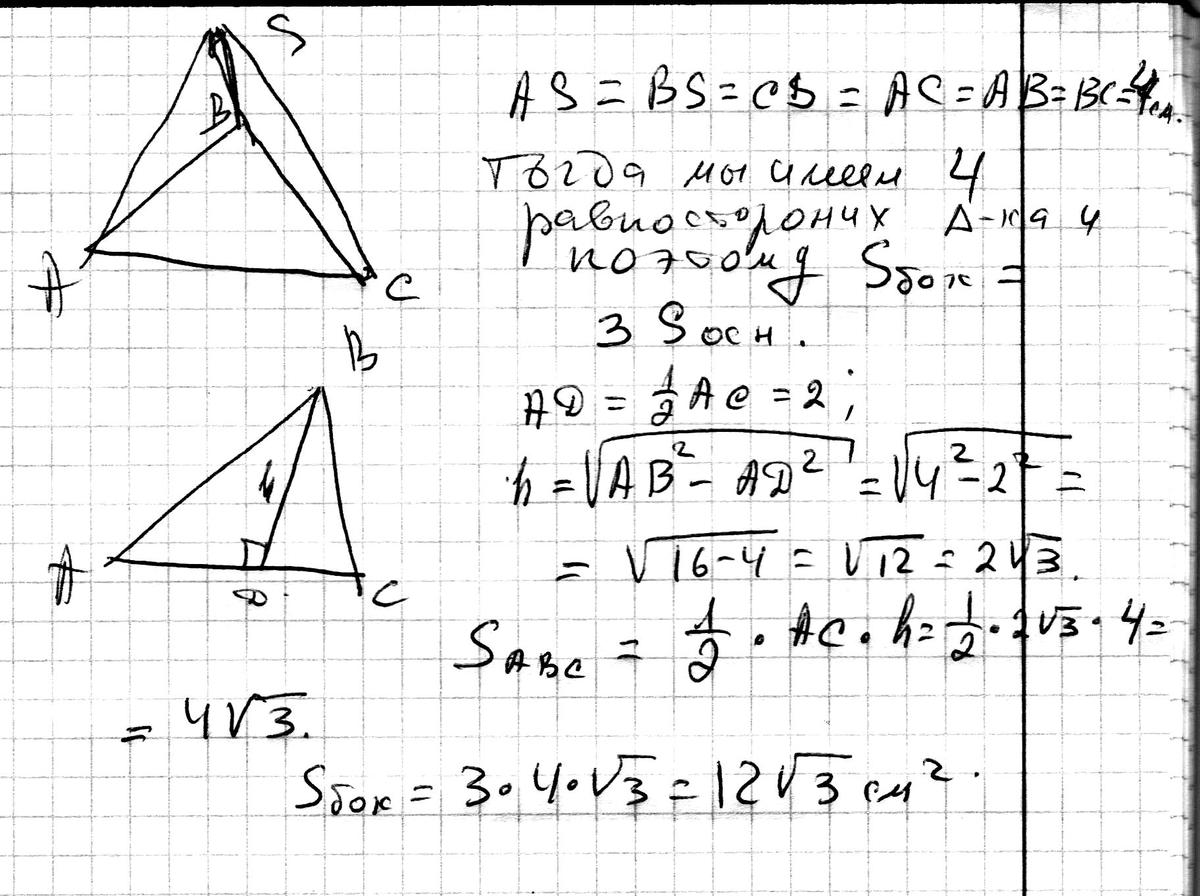 S
B
A
C
AS = BS = CS = AC = AB = BC = 4 см.
Тогда мы имеем 4
равносторониx Δ-ка и
поэтому Sбок =
3 Sосн.
B
h
A
D
C
AD = 1/2 AC = 2;
h = √(AB² - AD²) = √(4² - 2²) =
= √(16-4) = √12 = 2√3.
S ABC = 1/2 · AC · h = 1/2 · 2√3 · 4 =
= 4√3.
Sбок = 3·4·√3 = 12√3 см².